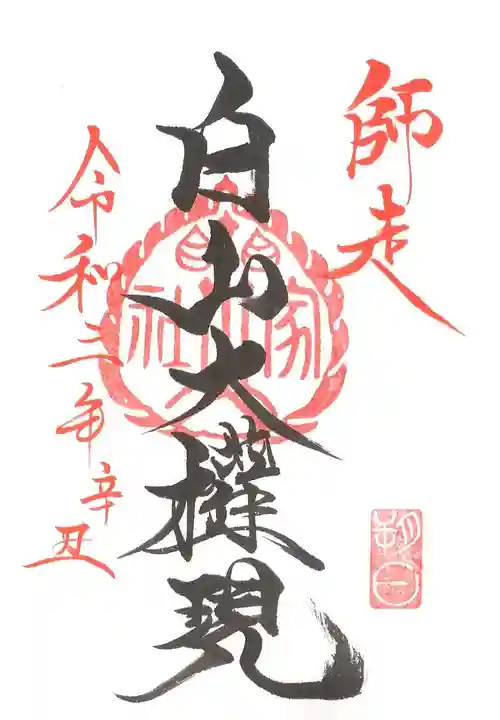 師走
白山大権現
令和三年辛丑